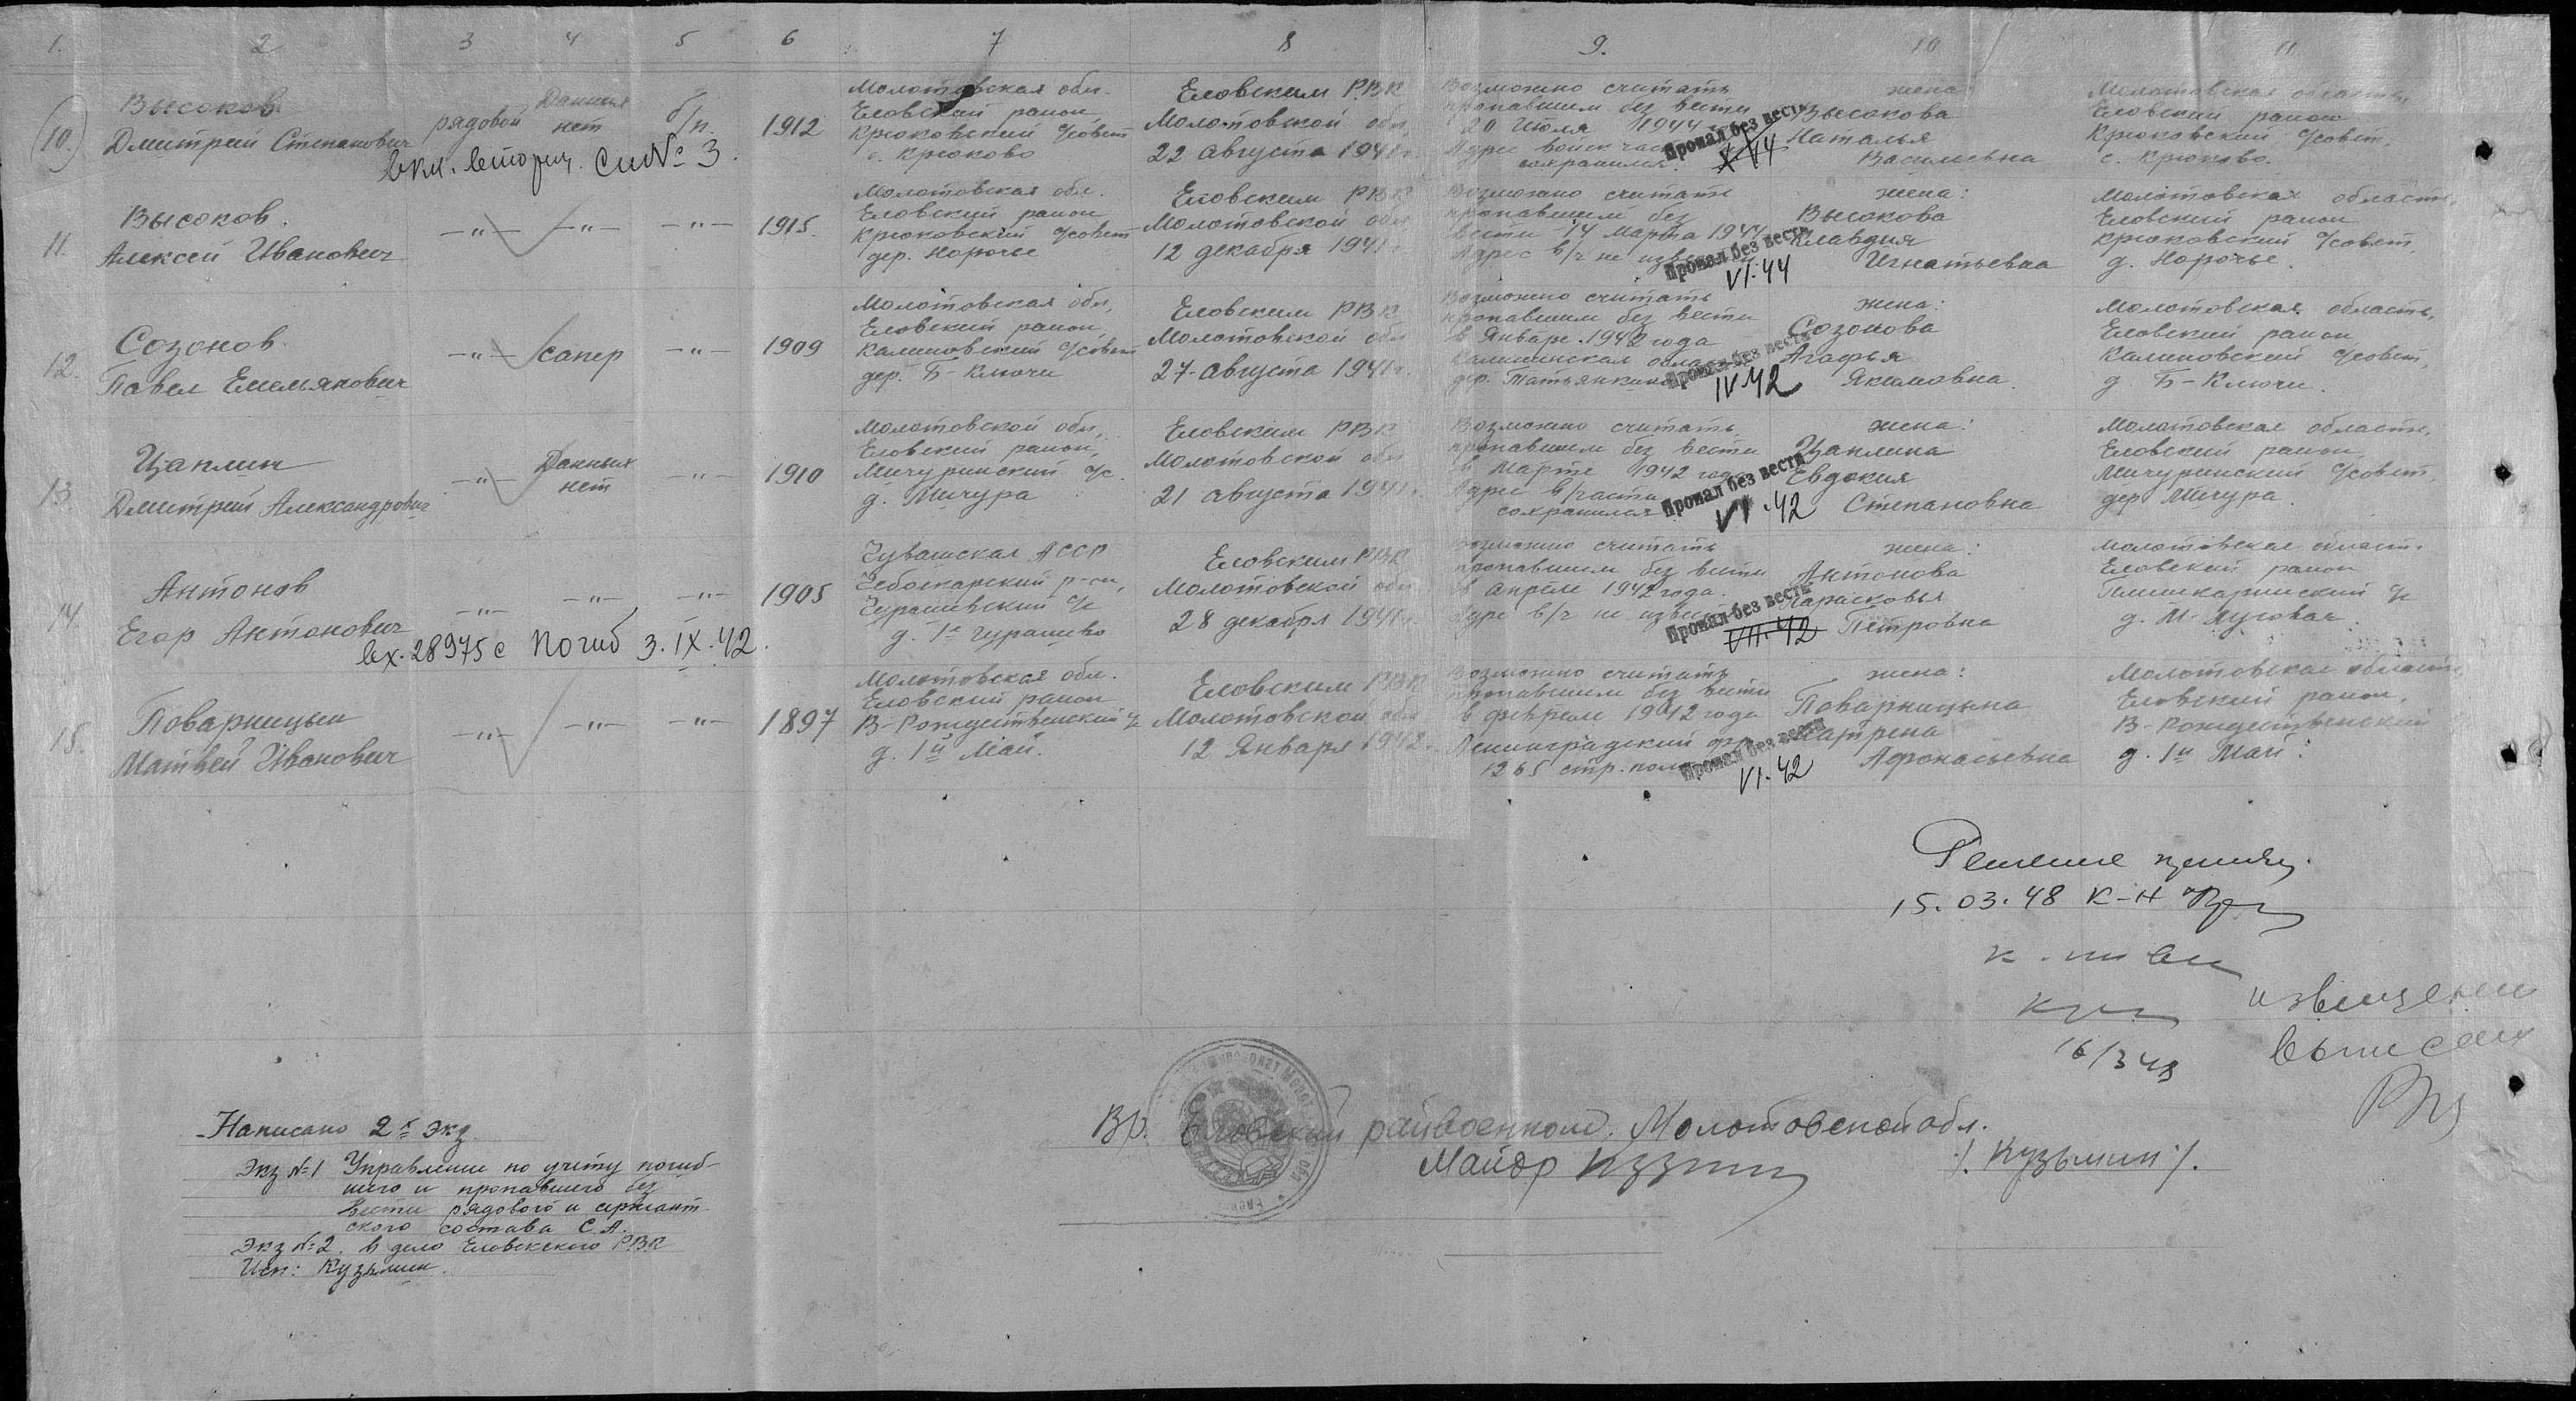 1. 2 3 4 5 6 7 8 9. 10 11
10. Высоков Дмитрий Степанович
рядовой
Данных нет
б/п.
1912
Молотовская обл.
Еловский район,
Крюковский с/совет
с. Крюково
Еловским РВК
Молотовской обл.
22 августа 1941 г.
Возможно считать
пропавшим без вести
20 Июля 1944
Адрес войск час
сохранился
Пропал без вести
X. 44
жена:
Высокова
Наталья
Васильевна
Молотовская область,
Еловский район
Крюковский с/совет,
с. Крюково.
вкл. вторич. см № 3.
11. Высоков.
Алексей Иванович
—"— —"— —"—
1915.
Молотовская обл.
Еловский район
Крюковский с/совет
дер. Норочье
Еловским РВК
Молотовской обл
12 декабря 1941 г.
Возможно считать
пропавшим без
вести 14 марта 1944
Адрес в/ч не извес
Пропал без вести
VI. 44
жена:
Высокова
Клавдия
Игнатьевна
Молотовская область,
Еловский район
Крюковский с/совет,
д. Норочье.
12. Созонов
Павел Емельянович
—"— сапер —"—
1909
Молотовская обл,
Еловский район,
Калиновский с/совет
дер. Б-Ключи
Еловским РВК
Молотовской обл
27 августа 1941 г.
Возможно считать
пропавшим без вести
в Январе 1942 года
Калининская обла
дер. Татьянкино
Пропал без вести
IV. 42
жена:
Созонова
Агафья
Якимовна.
Молотовская область,
Еловский район,
Калиновский с/совет,
д. Б-Ключи.
13. Цаплин
Дмитрий Александрович
—"— Данных нет —"—
1910
Молотовской обл,
Еловский район,
Мичуринский с/с.
д. Мичура
Еловским РВК
Молотовской обл
21 августа 1941 г.
Возможно считать
пропавшим без вести
в марте 1942 года
Адрес в/части
сохранился
Пропал без вести
VI. 42
жена:
Цаплина
Евдокия
Степановна
Молотовская область,
Еловский район,
Мичуринский с/совет
дер Мичура.
14. Антонов
Егор Антонович
—"— —"— —"—
1905
Чувашская АССР
Чебоксарский р-он,
Чурашевский с/с
д. 1е Чурашево
Еловским РВК
Молотовской обл
28 декабря 1941 г.
Возможно считать
пропавшим без вести
в апреле 1942 года.
Адрес в/ч не извес
Пропал без вести
VII. 42
жена:
Антонова
Парасковья
Петровна
Молотовская област.
Еловский район
Плишкаринский с/с
д. М-Луговая
вх. 28975с погиб 3. IX. 42.
15. Поварницын
Матвей Иванович
—"— —"— —"—
1897
Молотовская обл.
Еловский район
В-Рождественский с/с
д. 1й Май.
Еловским РВК
Молотовской обл
12 Января 1942 г.
Возможно считать
пропавшим без вести
в феврале 1942 года
Ленинградский фр
1265 стр. полк
Пропал без вести
VI. 42
жена:
Поварницына
Матрена
Афонасьевна
Молотовская область,
Еловский район,
В-Рождественский
д. 1й Май.
Решение принял
15.03.48 к-н
16/3 48
извещения
выписаны
Вр. Еловский райвоенком. Молотовской обл.
Майор
/. Кузьмин /.
Написано 2х экз.
Экз №1 Управление по учету погиб-
шего и пропавшего без
вести рядового и сержант-
ского состава С.А.
Экз №2. в дело Еловского РВК
Исп: Кузьмин.